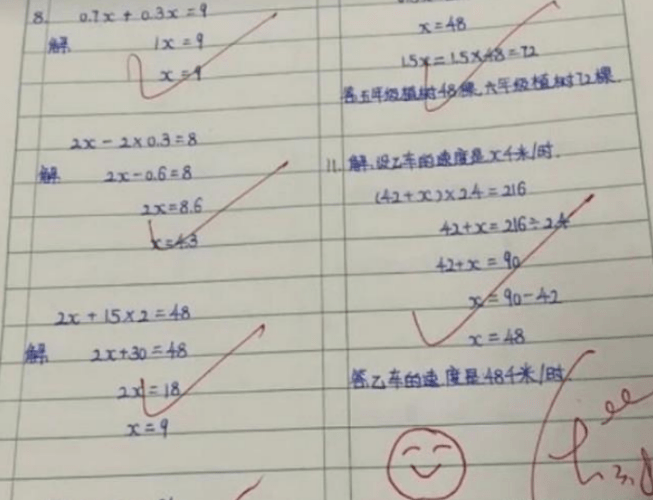 8. 0.7x + 0.3x = 9
解 1x = 9
x = 9
2x - 2×0.3 = 8
解 2x - 0.6 = 8
2x = 8.6
x = 4.3
2x + 15×2 = 48
解 2x + 30 = 48
2x = 18
x = 9
x = 48
1.5x = 1.5×48 = 72
答五年级植树48棵,六年级植树72棵.
11. 解.设乙车的速度是x千米/时.
(42+x)×2.4 = 216
42+x = 216÷2.4
42+x = 90
x = 90-42
x = 48
答乙车的速度是48千米/时